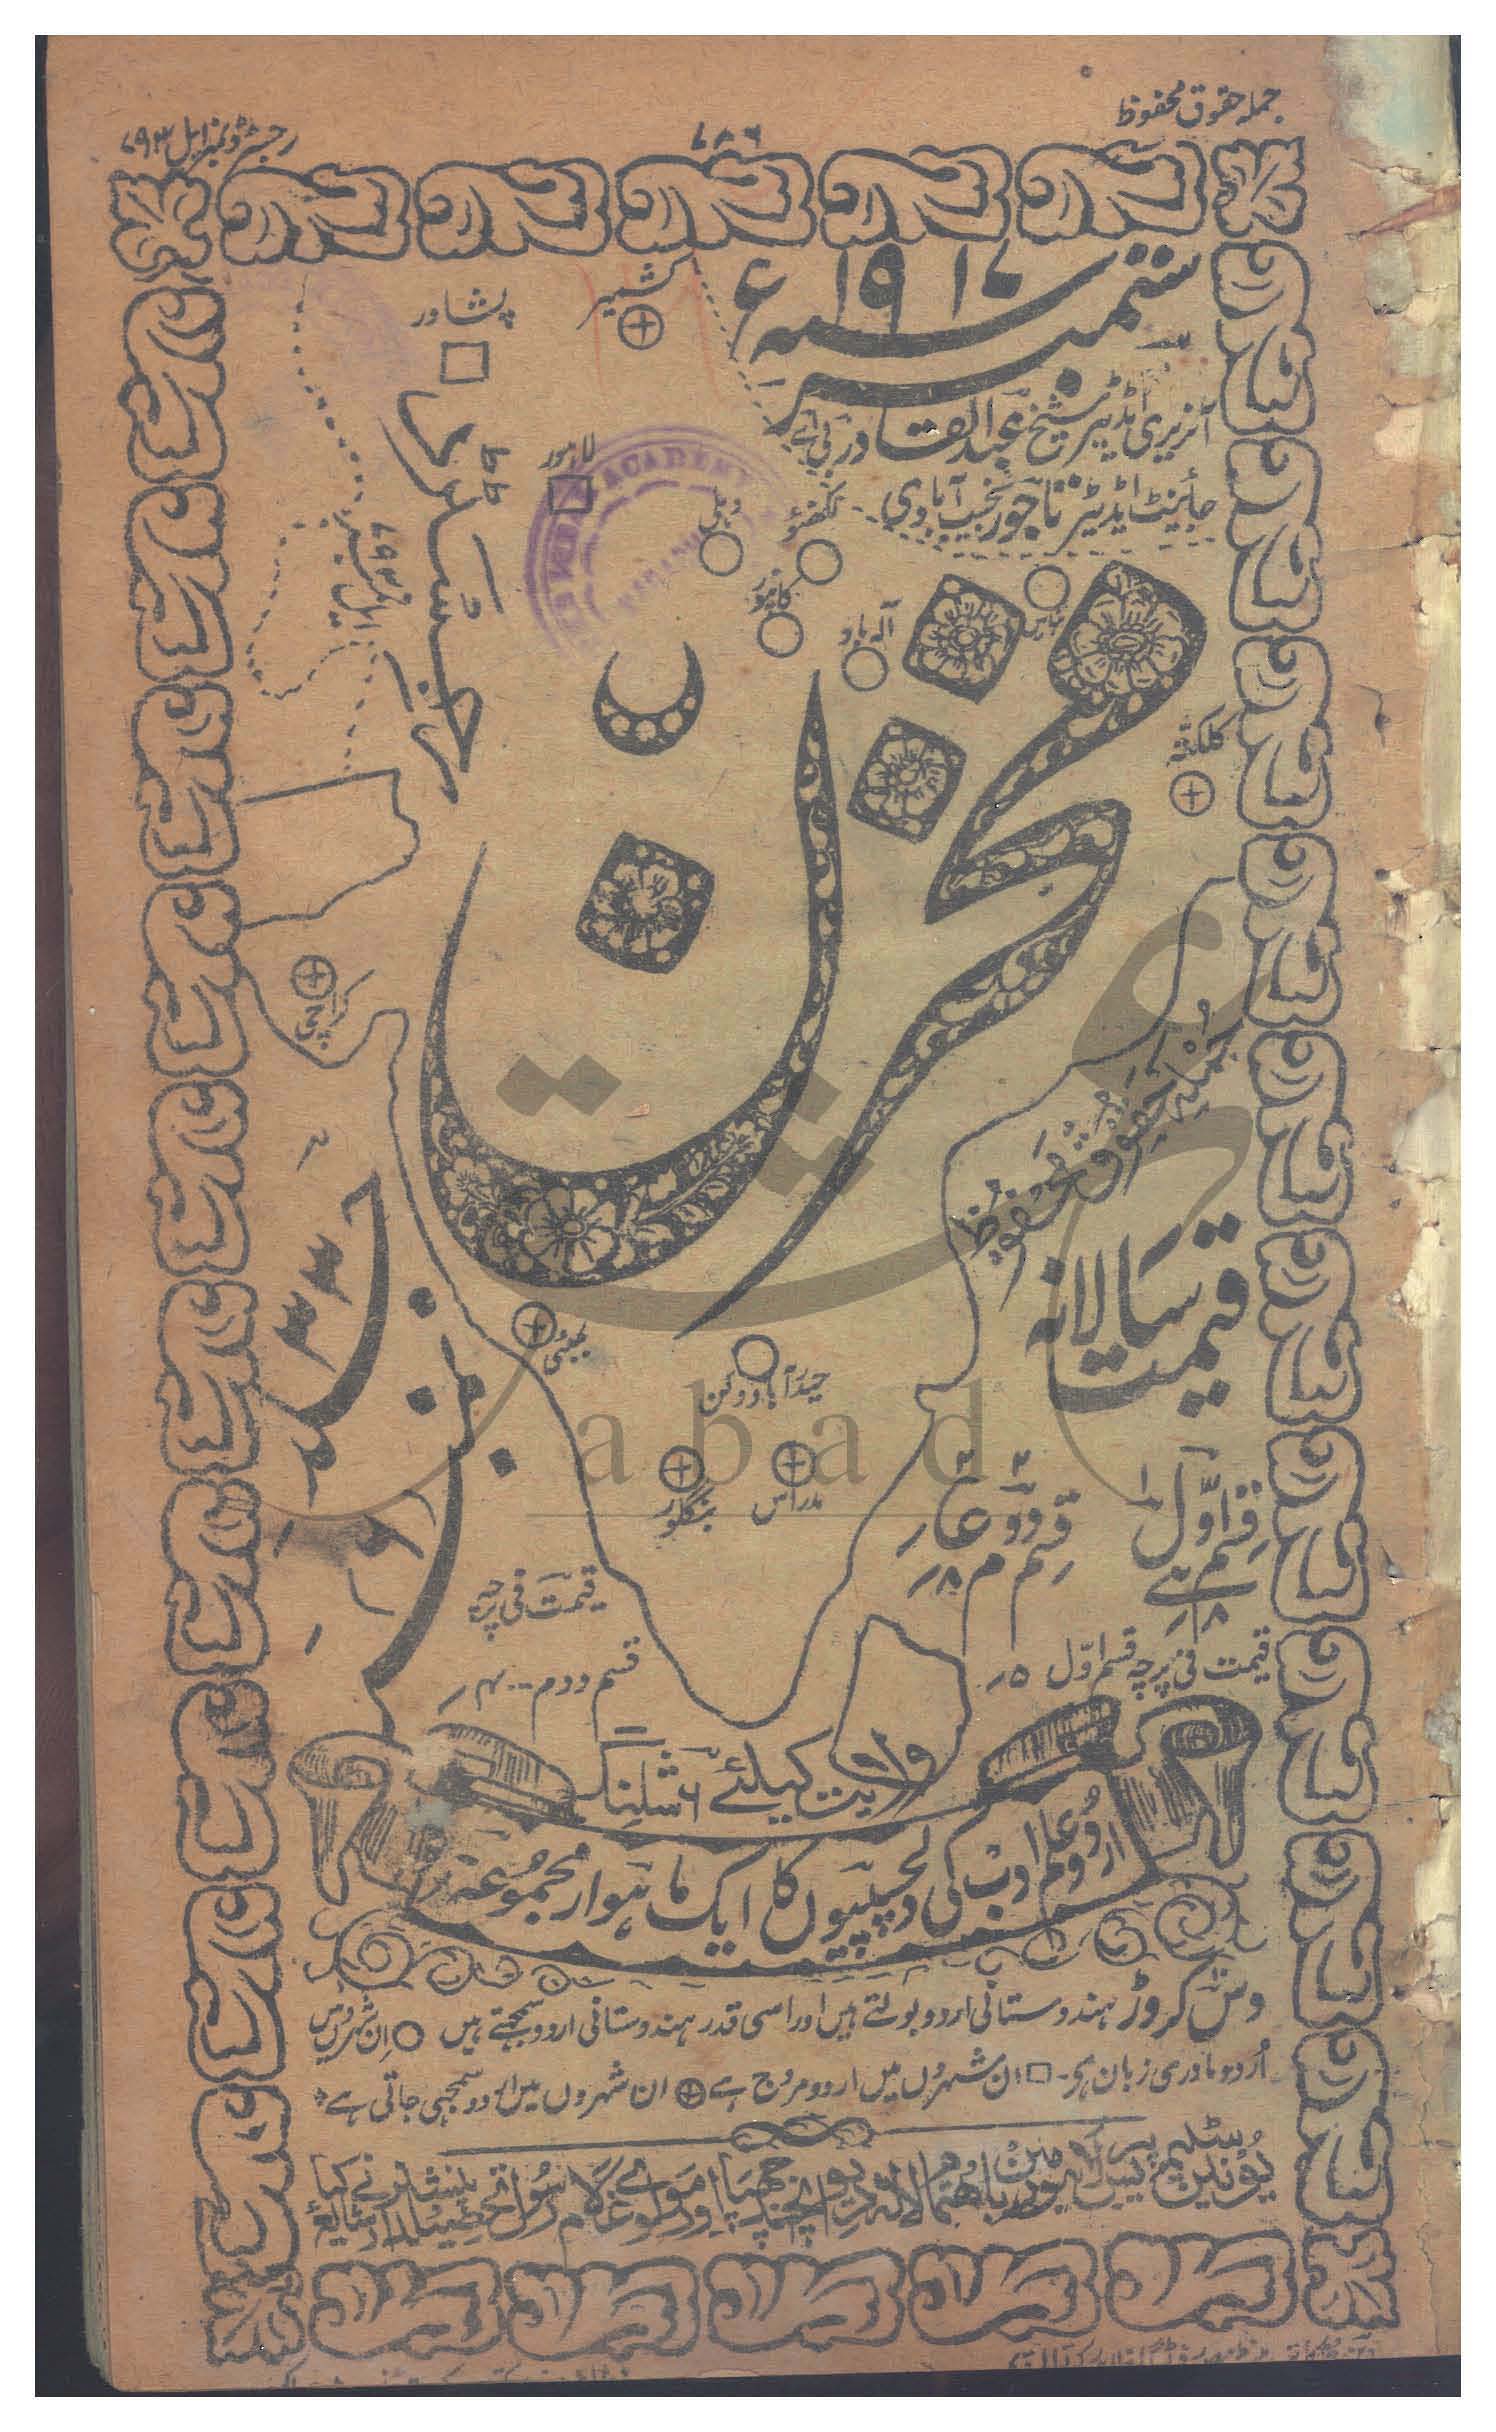 جملہ حقوق محفوظ
۷۸۶
رجسٹرڈ نمبر ایل ۷۹۳
ستمبر سنہ ۱۹۱۷ء
آنریری اڈیٹر شیخ عبدالقادر بی اے
جائینٹ اڈیٹر تاجور نجیب آبادی
کشمیر
پشاور
لاہور
دہلی
لکھنؤ
کانپور
الہ آباد
بنارس
کلکتہ
رجسٹرڈ
مخزن
کراچی
جملہ حقوق محفوظ
قیمت سالانہ
جلد ۳۳
نمبر ۶
بمبئی
حیدرآباد دکن
بنگلور
مدراس
abad
قسم اوّل
قسم دوم
قیمت فی پرچہ قسم اوّل ۵ر
قیمت فی پرچہ
قسم دوم ۴ر
ولایت کیلئے ۶ شلنگ
اردو علم ادب کی دلچسپیوں کا ایک ماہوار مجموعہ
دس کروڑ ہندوستانی اردو بولتے ہیں اور اسی قدر ہندوستانی اردو سمجھتے ہیں ○ ان شہروں میں
اُردو مادری زبان ہی۔ □ ان شہروں میں اردو مروج ہے ⊕ ان شہروں میں اردو سمجھی جاتی ہے
یونین سٹیم پریس لاہور میں باہتمام لالہ دیوان چند چھپا اور مولوی غلام رسول تحصیلدار پنشنر نے کیا شایع